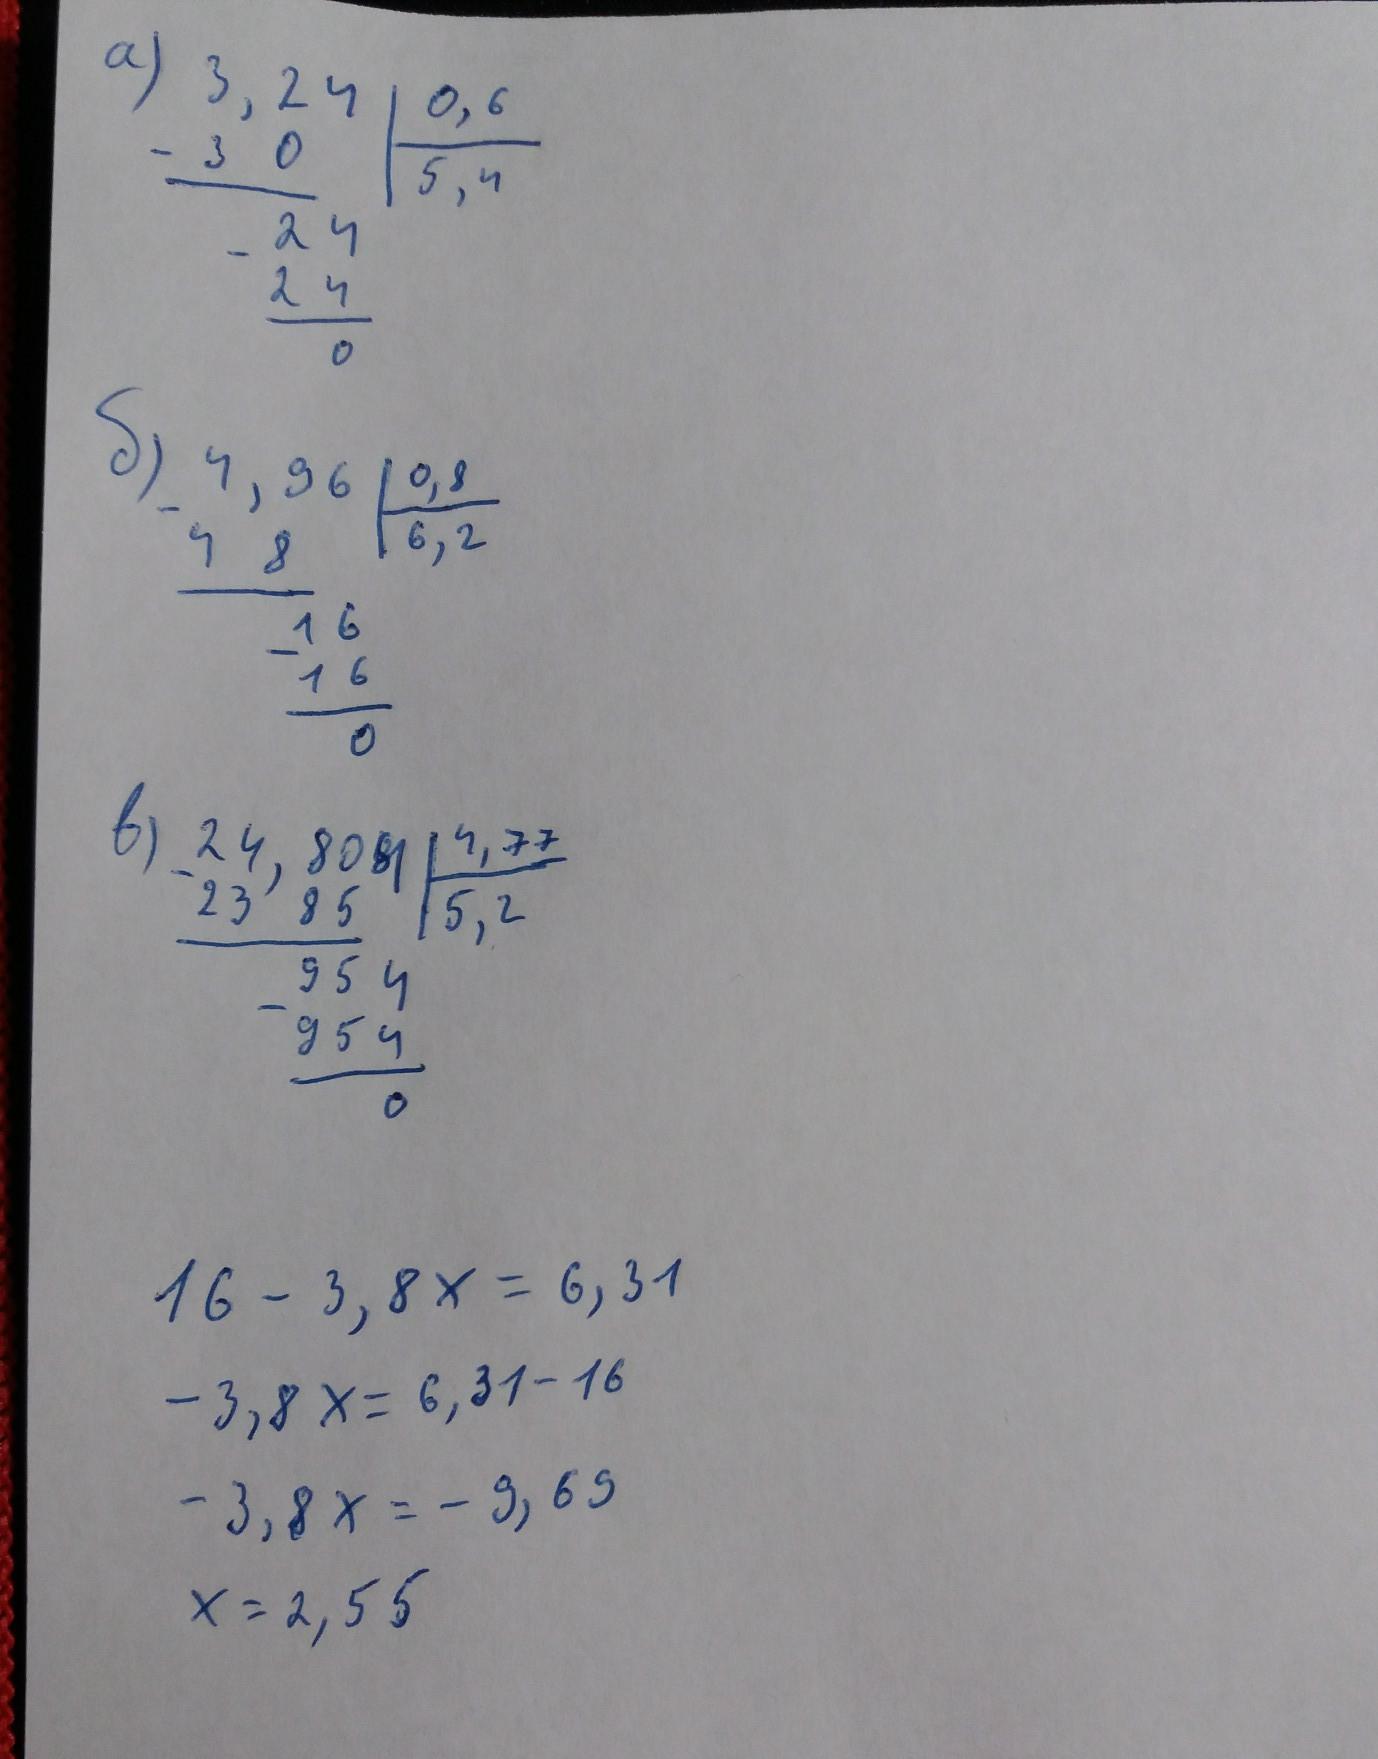 а) 3,24 | 0,6
- 3 0 | 5,4
- 24
24
0
б) 4,96 | 0,8
- 4 8 | 6,2
- 16
16
0
в) 24,804 | 4,77
- 23 85 | 5,2
- 954
954
0
16 - 3,8x = 6,31
-3,8x = 6,31 - 16
-3,8x = -9,69
x = 2,55